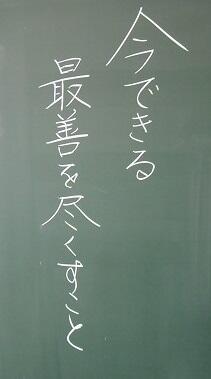 今できる
最善を尽くすこと